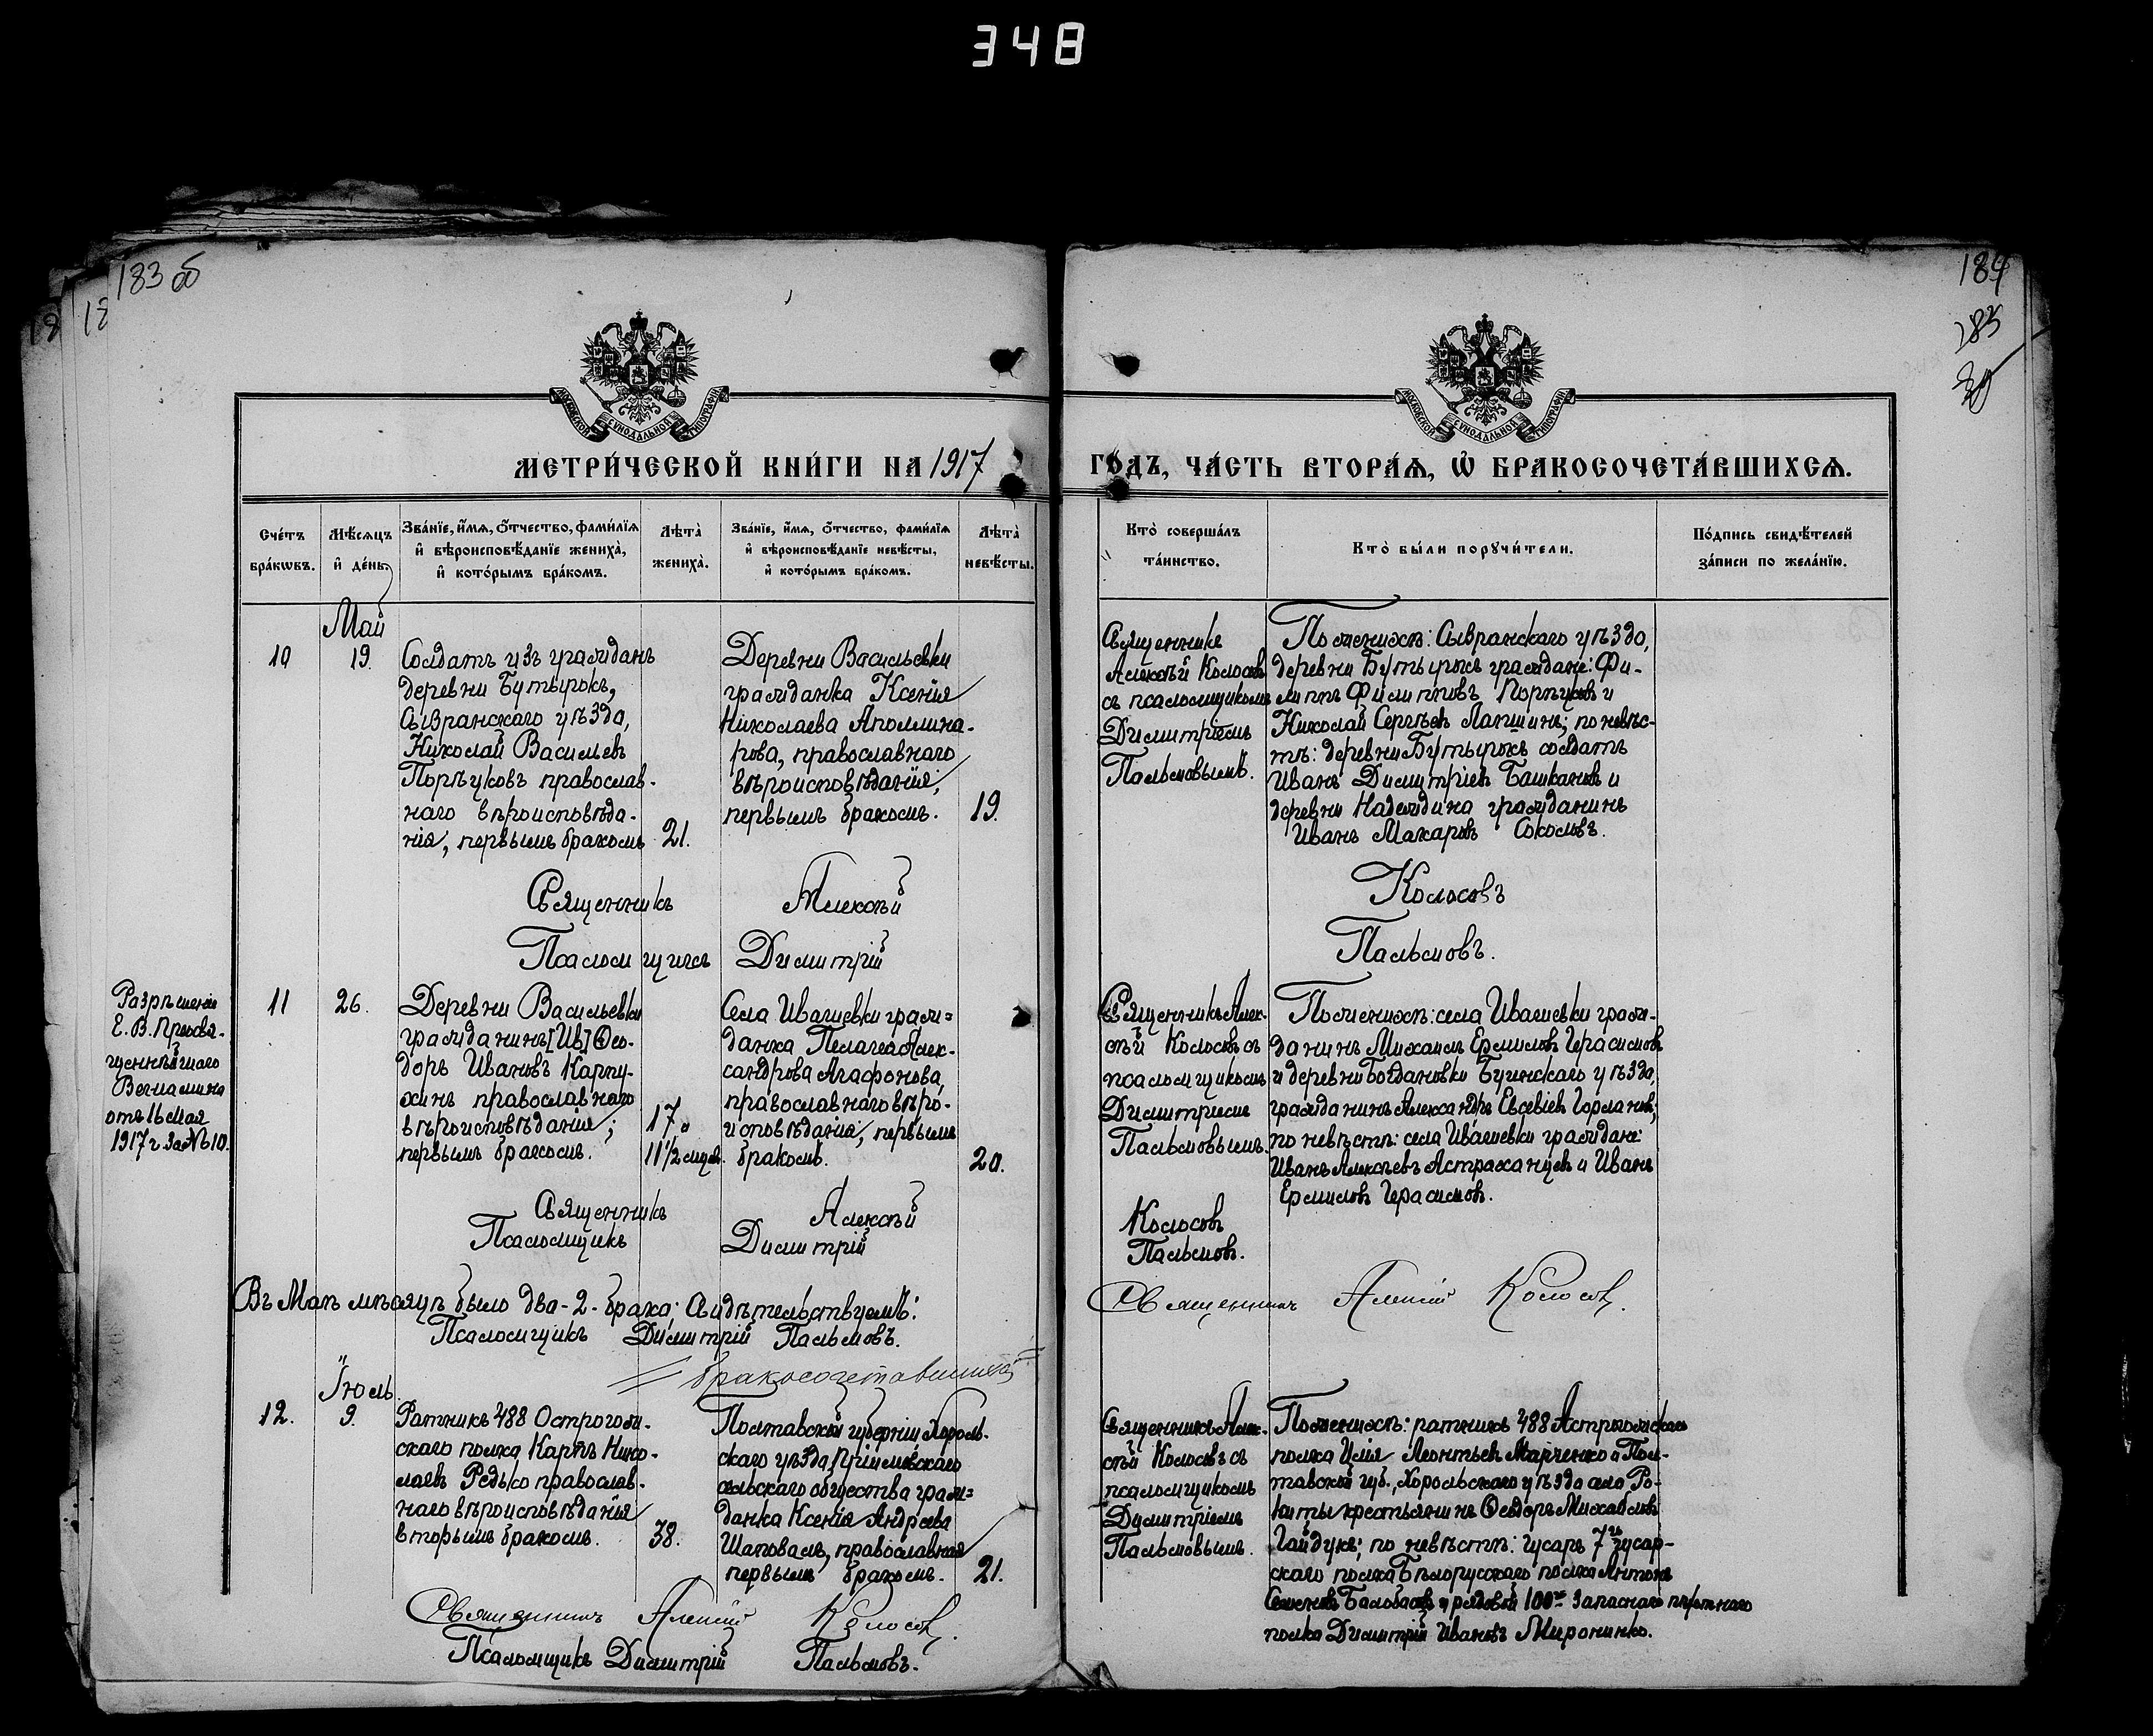 348
183 об
184
183
МОСКОВСКОЙ СѴНОДАЛЬНОЙ ТИПОГРАФІИ
МОСКОВСКОЙ СѴНОДАЛЬНОЙ ТИПОГРАФІИ
МЕТРИ́ЧЕСКОЙ КНИ́ГИ НА 1917
ГО́ДЪ, ЧА́СТЬ ВТОРА́Ѧ, Ѡ БРАКОСОЧЕТА́ВШИХСѦ.
Сче́тъ
бра́кѡвъ.
Мѣ́сяцъ
и де́нь.
Зва́нїе, и́мѧ, о́тчество, фами́лїѧ
и вѣроисповѣ́данїе жениха̀,
и кото́рымъ бра́комъ.
Лѣта̀
жениха̀.
Зва́нїе, и́мѧ, о́тчество, фами́лїѧ
и вѣроисповѣ́данїе невѣ́сты,
и кото́рымъ бра́комъ.
Лѣта̀
невѣ́сты.
Кто̀ соверша́лъ
та́инство.
Кто̀ бы́ли порꙋчи́тели.
По́дпись свидѣ́телей
за́писи по жела́нїю.
Май
10
19.
Солдатъ изъ гражданъ
деревни Бутырокъ,
Сызранскаго уѣзда,
Николай Васильевъ
Порѣцковъ православ-
наго вѣроисповѣда-
нія, первымъ бракомъ
21.
Деревни Васильевки
гражданка Ксенія
Николаева Аполлина-
рова, православнаго
вѣроисповѣданія;
первымъ бракомъ.
19.
Священникъ
Алексѣй Колосовъ
съ псаломщикомъ
Димитріемъ
Пальмовымъ.
По женихѣ: Сызранскаго уѣзда,
деревни Бутырокъ граждане: Фи-
липпъ Филипповъ Порѣцковъ и
Николай Сергѣевъ Лапшинъ; по невѣс-
тѣ: деревни Бутырокъ солдатъ
Иванъ Димитріевъ Башкановъ и
деревни Надеждина гражданинъ
Иванъ Макаровъ Соколовъ.
Священникъ Алексѣй Колосовъ
Псаломщикъ Димитрій Пальмовъ.
Разрѣшеніе
Е. В. Преосвя-
щеннѣйшаго
Веніамина
отъ 16 Мая
1917 г. за № 10.
11
26.
Деревни Васильевки
гражданинъ [Ив] Ѳео-
доръ Ивановъ Карпу-
хинъ православнаго
вѣроисповѣданія;
первымъ бракомъ.
17 л
11½ мцев.
Села Ивашевки граж=
данка Пелагея Алек-
сандрова Агафонова,
православнаго вѣро-
исповѣданія, первымъ
бракомъ.
20.
Священникъ Алек-
сѣй Колосовъ съ
псаломщикомъ
Димитріемъ
Пальмовымъ.
По женихѣ: села Ивашевки граж-
данинъ Михаилъ Ермиловъ Герасимовъ
и деревни Богдановки Буинскаго уѣзда,
гражданинъ Александръ Евсевіевъ Горлановъ;
по невѣстѣ: села Ивашевки граждане:
Иванъ Алексѣевъ Астраханцевъ и Иванъ
Ермиловъ Герасимовъ.
Священникъ Алексѣй
Псаломщикъ Димитрій
Колосовъ
Пальмовъ.
Въ Маѣ мѣсяцѣ было два-2-брака; Свидѣтельствуемъ:
Священникъ Алексій Колосовъ.
Псаломщикъ Димитрій Пальмовъ.
= бракосочетавшихся =
Іюль
12.
9.
Ратникъ 488 Острогож-
скаго полка, Карпъ Нико-
лаевъ Редько православ-
наго вѣроисповѣданія
вторымъ бракомъ.
38.
Полтавской губерніи Хороль-
скаго уѣзда,
сельскаго общества граж=
данка Ксенія Андреева
Шаповалъ, православная
первымъ бракомъ.
21.
Священникъ Алек-
сѣй Колосовъ съ
псаломщикомъ
Димитріемъ
Пальмовымъ.
По женихѣ: ратникъ 488 Астрогожскаго
полка Илія Леонтьевъ Марченко и Пол-
тавской губ., Хорольскаго уѣзда села Ро-
киты крестьянинъ Ѳеодоръ Михайловъ
Гайдукъ; по невѣстѣ: гусаръ 7й гусар-
скаго полка Бѣлорусскаго полка Антонъ
Семеновъ и рядовой 100го Запаснаго пѣхотнаго
полка Димитрій Ивановъ Миронинко.
Священникъ Алексій Колосовъ.
Псаломщикъ Димитрій Пальмовъ.